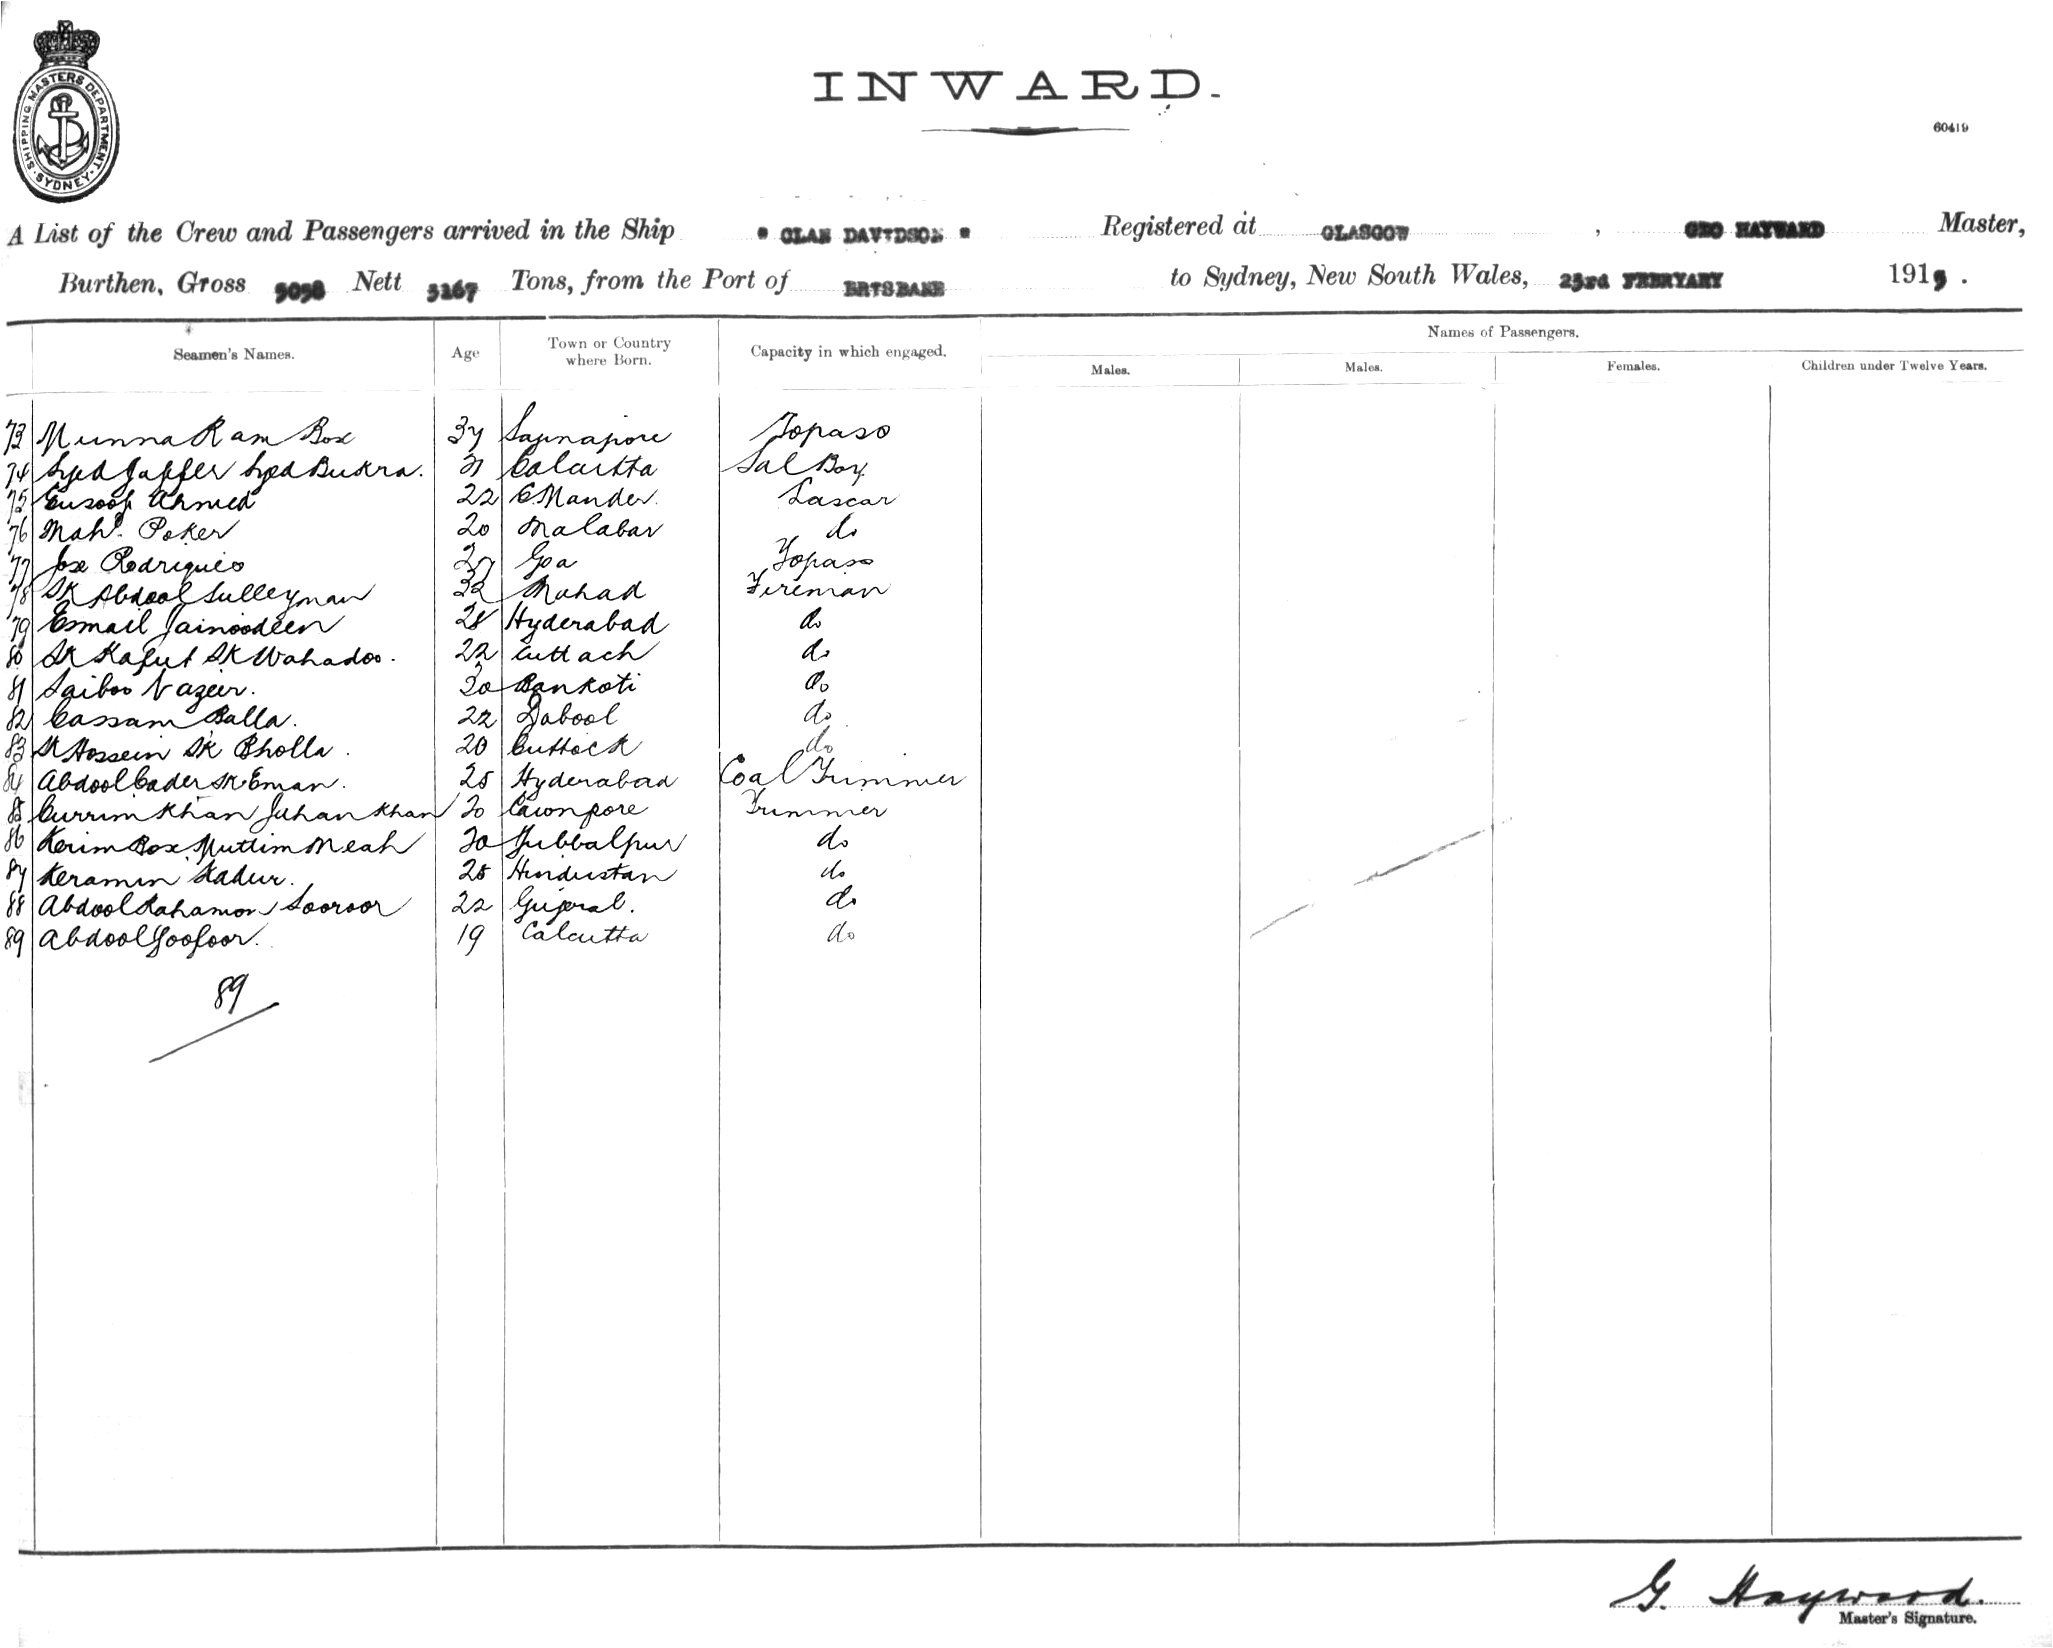 SHIPPING MASTERS DEPARTMENT · SYDNEY ·
INWARD.
60419
A List of the Crew and Passengers arrived in the Ship " CLAN DAVIDSON " Registered at GLASGOW , GEO HAYWARD Master,
Burthen, Gross Nett 3167 Tons, from the Port of BRISBANE to Sydney, New South Wales, 23rd FEBRYARY 191 .
Names of Passengers.
Seamen's Names. Age Town or Country where Born. Capacity in which engaged. Males. Males. Females. Children under Twelve Years.
73 Munna Ram Box 37 Topass
74 Syed Jaffer Syed Bukra. 21 Calcutta Sal Boy
75 Eusoof Ahmed 22 C. Mander. Lascar
76 Mahd. Poker 20 Malabar do
77 Jose Rodrigues 27 Goa Topass
78 SK Abdool Sulleyman 32 Mahad Fireman
79 Esmail Jainoodeen 28 Hyderabad do
80 SK Kaful SK Wahadoo. 22 Cuttach do
81 Saiboo Nazeir. 20 Bankoti do
82 Cassam Balla. 22 Dabool do
83 SK Hossein SK Bholla. 20 Cuttock do
84 Abdool Cader SK Eman. 25 Hyderabad Coal Trimmer
85 Currim Khan Juhan Khan 20 Cawnpore Trimmer
86 Kerim Box Muttim Meah 20 Jubbalpur do
87 Keramin Kadur. 25 Hindustan do
88 Abdool Rahamon Sooroor 22 Gujeral. do
89 Abdool Goofoor. 19 Calcutta do
89
G. Hayward.
Master's Signature.